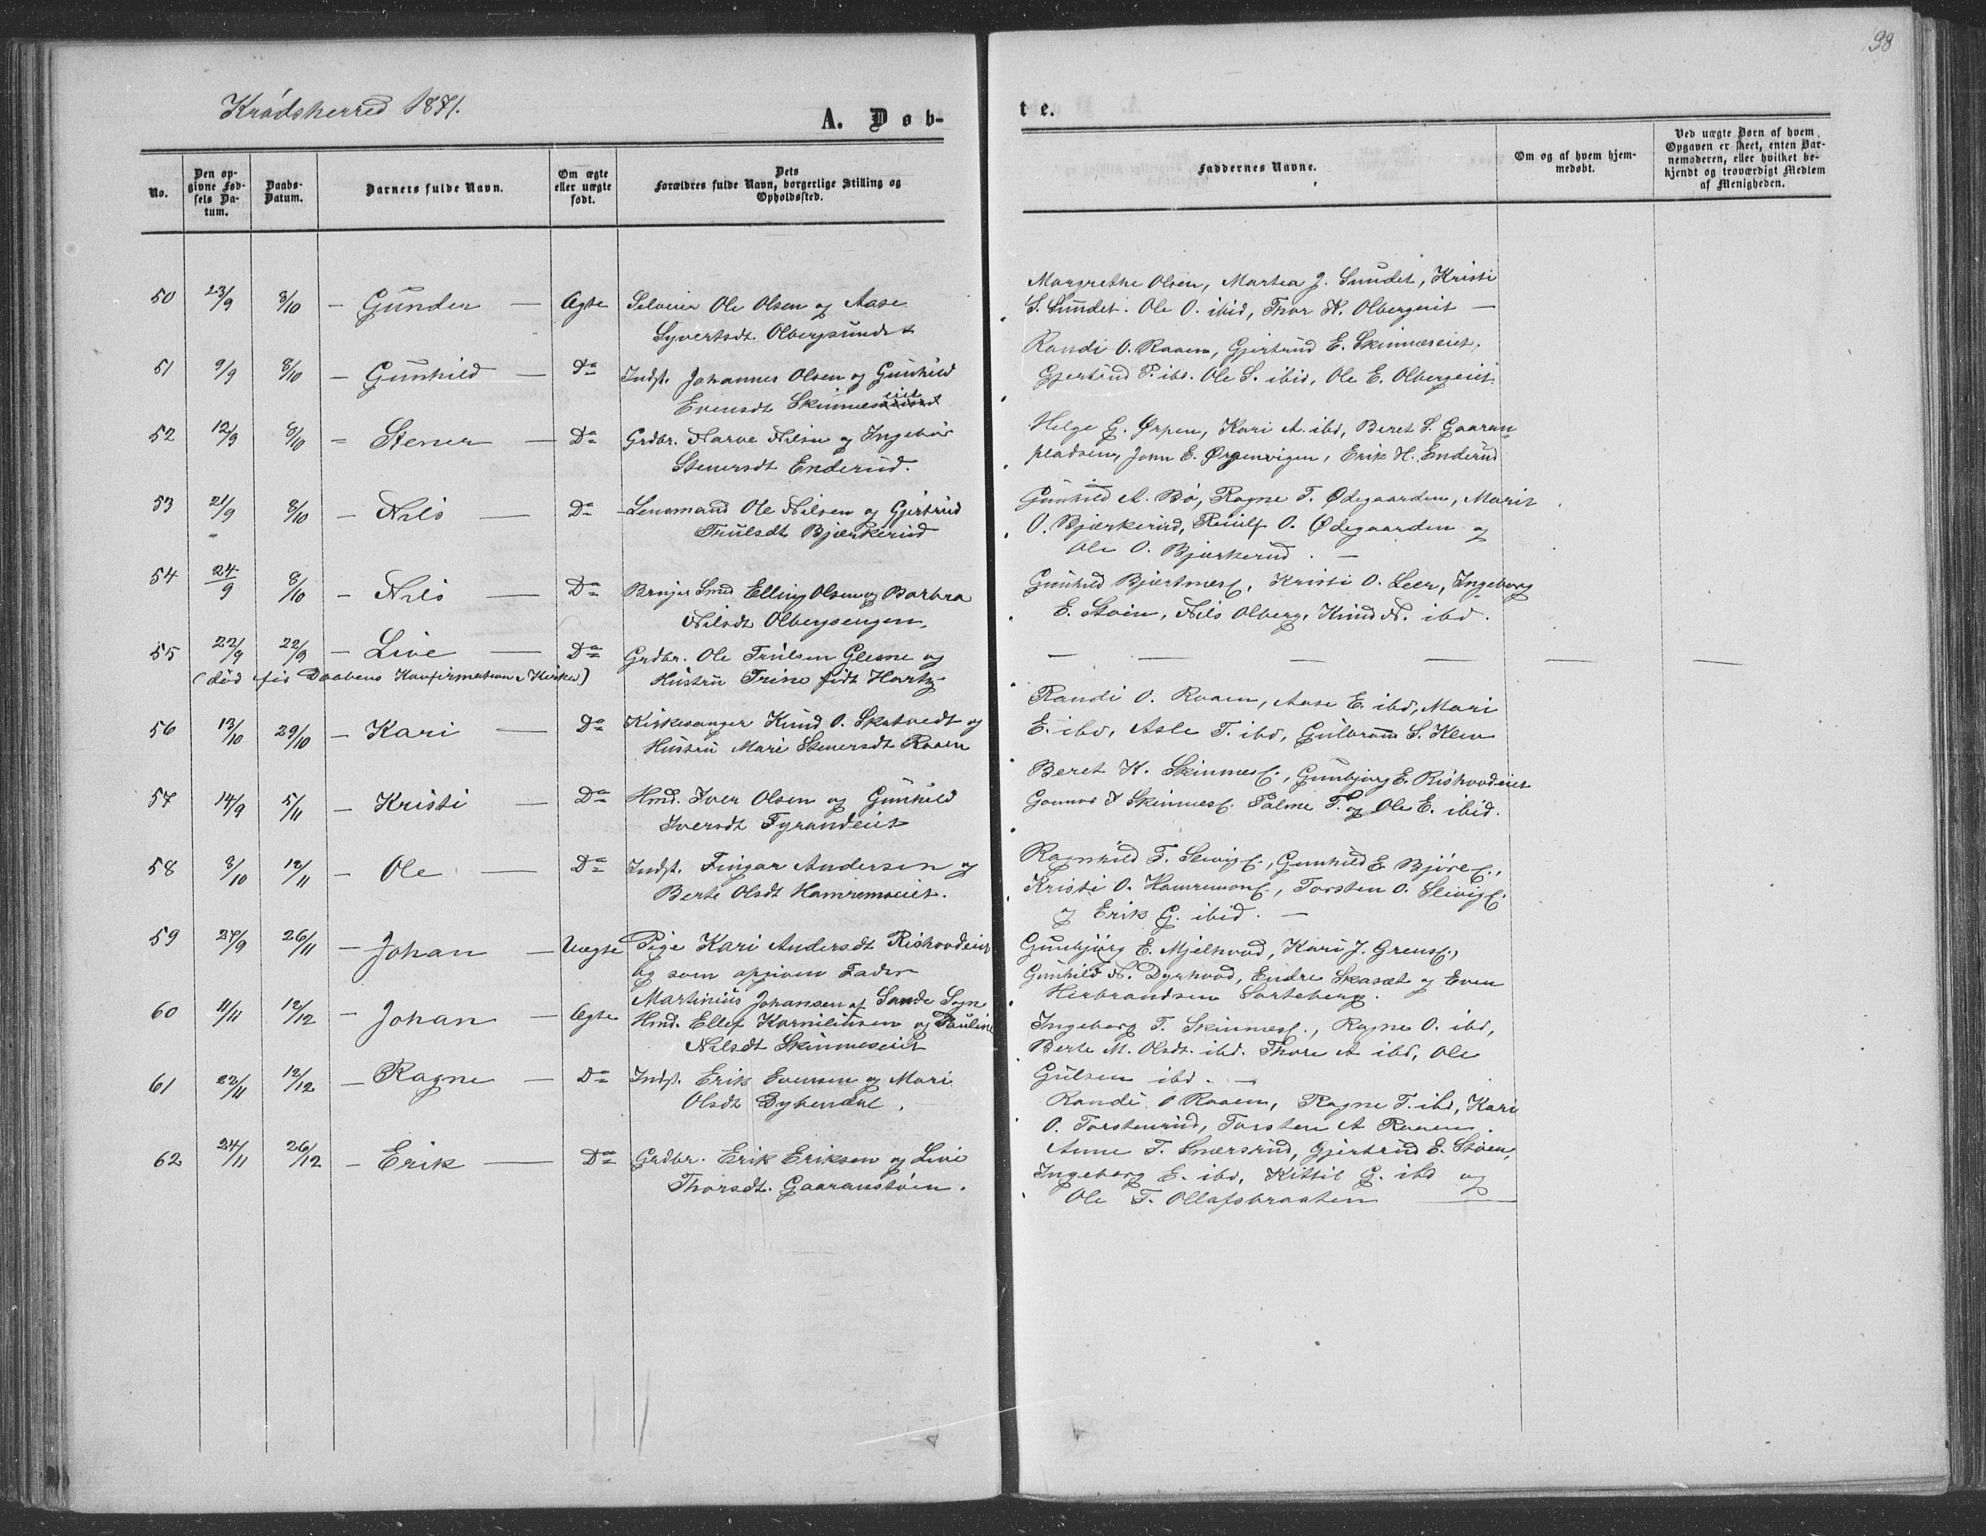 98
Krødsherred 1871.
A. Døb-
te.
No.
Den op-
givne Fød-
sels Da-
tum.
Daabs-
Datum.
Barnets fulde Navn.
Om ægte
eller uægte
født.
Dets
Forældres fulde Navn, borgerlige Stilling og
Opholdssted.
Faddernes Navne.
Om og af hvem hjem-
medøbt.
Ved uægte Børn af hvem
Opgaven er skeet, enten Bar-
nemoderen, eller hvilket be-
kjendt og troværdigt Medlem
af Menigheden.
50 23/9 8/10 – Gunder — Ægte Selveier Ole Olsen og Aase
Syvertsdt. Olbergsundet
Margrethe Olsen, Martea J. Sundet, Kristi
S. Sundet. Ole O. ibid, Thor N. Olbergeiet —
51 9/9 8/10 – Gunhild — Do Indst. Johannes Olsen og Gunhild
Evensdt Skinneseiet
Randi O. Raaen, Gjertrud E. Skinneseiet,
Gjertrud P. ibd. Ole S. ibid, Ole E. Olbergeiet.
52 12/9 8/10 = Stener — Do Grdbr. Narve Nilsen og Ingebor
Stenersdt Enderud.
Helge G. Ørpen, Kari A. ibd, Beret S. Gaaran-
pladsen, John E. Ørpenvigen, Erik H. Enderud
53 21/9 8/10 – Nils — Do Lensmand Ole Nilsen og Gjertrud
Trulsdt Bjærkerud
Gunhild A. Bø, Ragne T. Ødegaarden, Marit
O. Bjærkerud, Ruulf O. Ødegaarden og
Ole O. Bjærkerud. —
54 24/9 8/10 – Nils — Do Smed Elling Olsen og Barbra
Nilsdt Olbergsengen.
Gunhild Bjærtnes, Kristi O. Leer, Ingeborg
E. Støen, Nils Olberg, Knud N. ibd.
55 22/9 22/9 – Live — Do Grdbr. Ole Trulsen Glesne og
(død før Daabens Konfirmation i Kirke) Hustru Trine født Hartz
— — — — — — —
56 13/10 29/10 – Kari — Do Kirkesanger Knud O. Skatvedt og
Hustru Mari Stenersdt Raaen
Randi O. Raaen, Aase E. ibd, Mari
E. ibd, Asle T. ibd, Gulbrand S. Klev
57 14/9 5/11 – Kristi — Do Hmd. Iver Olsen og Gunhild
Iversdt Tyrandeiet
Beret K. Skinnes, Gunbjørg E. Rishovdeiet
Gunnor Skinnes. Palme T. og Ole E. ibid.
58 8/10 12/11 – Ole — Do Indst. Fingar Andersen og
Berte Olsdt Hamremoeiet.
Ragnhild T. Slevig, Gunhild E Bjøre,
Kristi O. Hamremoen, Torsten O. Slevig
og Erik G. ibid. —
59 27/9 26/11 – Johan — Uægte Pige Kari Andersdt Rishovdeiet
og som opgiven Fader
Martinius Johansen af Sande Sogn
Gunbjørg E. Mjelhovd, Kari J. Grens,
Gunhild N. Dyrhovd, Endre Skasæt og Even
Herbrandsen Sorteberg.
60 11/11 12/12 – Johan — Ægte Hmd. Ellef Korniliusen og Pauline
Nilsdt Skinneseiet
Ingeborg T. Skinnes, Ragne O. ibd,
Berte M. Olsdt. ibd. Thore A ibd, Ole
Gulsen ibd. —
61 22/11 12/12 – Ragne — Do Indst. Erik Evensen og Mari
Olsdt Bybendal.
Randi O Raaen, Ragne T. ibd, Kari
O. Torstenrud, Torsten A Raaen.
62 24/11 26/12 – Erik — Do Grdbr. Erik Eriksen og Live
Thorsdt. Gaaranstøen.
Anne T. Snersrud, Gjertrud E. Støen,
Ingeborg E. ibd, Kittil G. ibd og
Ole T. Ollafsbraaten —